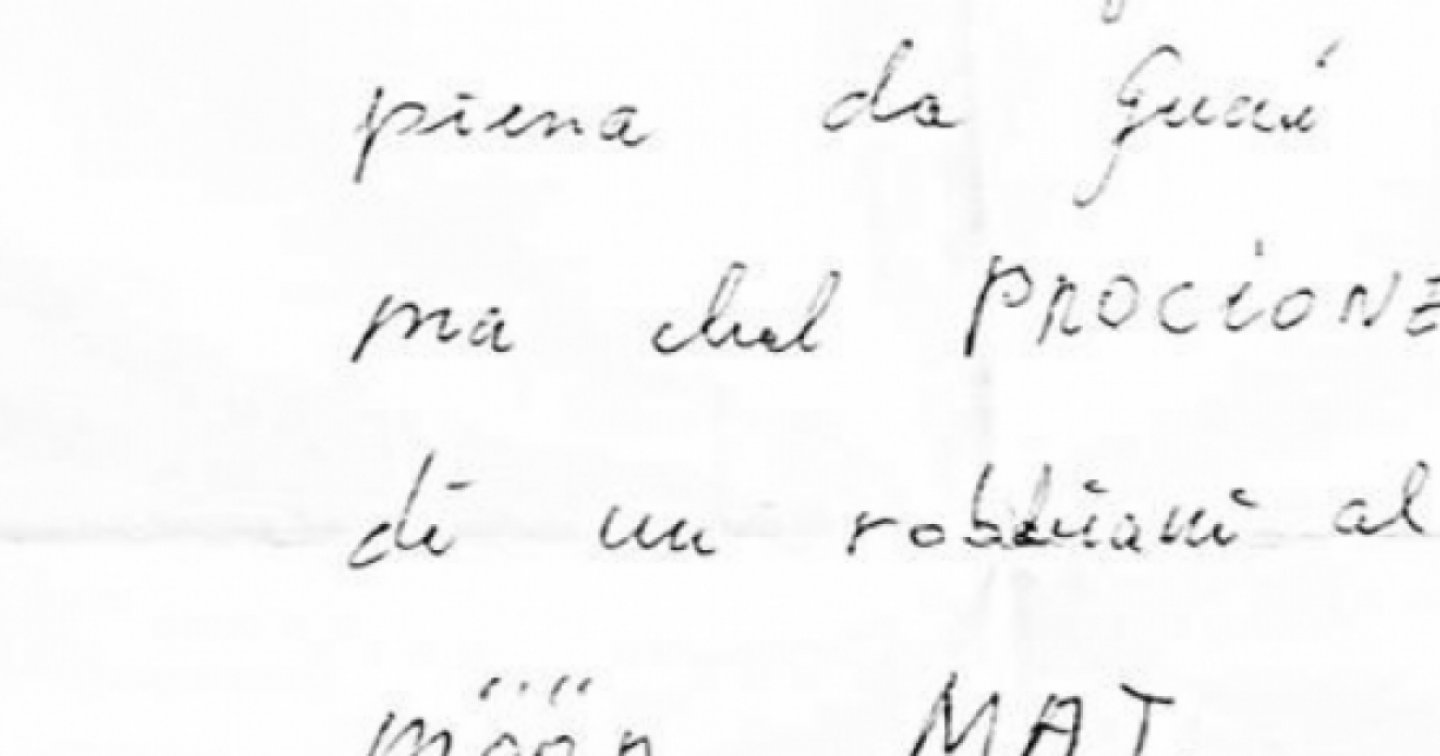 piena da guai
ma chel PROCIONE
di un robbiani al
möön MAT